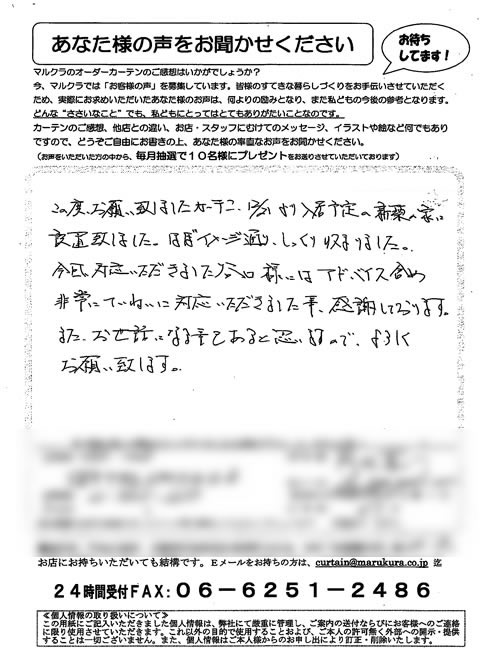 あなた様の声をお聞かせください
お待ち
してます!
マルクラのオーダーカーテンのご感想はいかがでしょうか?
今、マルクラでは「お客様の声」を募集しています。皆様のすてきな暮らしづくりをお手伝いさせていただく
ため、実際にお求めいただいたあなた様のお声は、何よりの励みとなり、また私どもの今後の参考となります。
どんな“ささいなこと”でも、私どもにとってはとてもありがたいことなのです。
カーテンのご感想、他店との違い、お店・スタッフにむけてのメッセージ、イラストや絵など何でもあり
ですので、どうぞご自由にお書きの上、あなた様の率直なお声をお聞かせください。
(お声をいただいた方の中から、毎月抽選で10名様にプレゼントをお送りさせていただいております)
この度、お願い致しましたカーテンニ、 より入居予定の新築の家に
設置致しました。ほぼイメージ通り、しっくり収まりました。
今回、対応いただきました 様にはアドバイス含め
非常にていねいに対応いただきました事、感謝しております。
また、お世話になる事もあると思いますので、よろしく
お願い致します。
お店にお持ちいただいても結構です。Eメールをお持ちの方は、curtain@marukura.co.jp 迄
24時間受付FAX:06-6251-2486
≪個人情報の取り扱いについて≫
この用紙にご記入いただきました個人情報は、弊社にて厳重に管理し、ご案内の送付ならびにお客様へのご連絡
に限り使用させていただきます。これ以外の目的で使用することおよび、ご本人の許可無く外部への開示・提供
することは一切ございません。また、個人情報はご本人様からのお申し出により訂正・削除いたします。